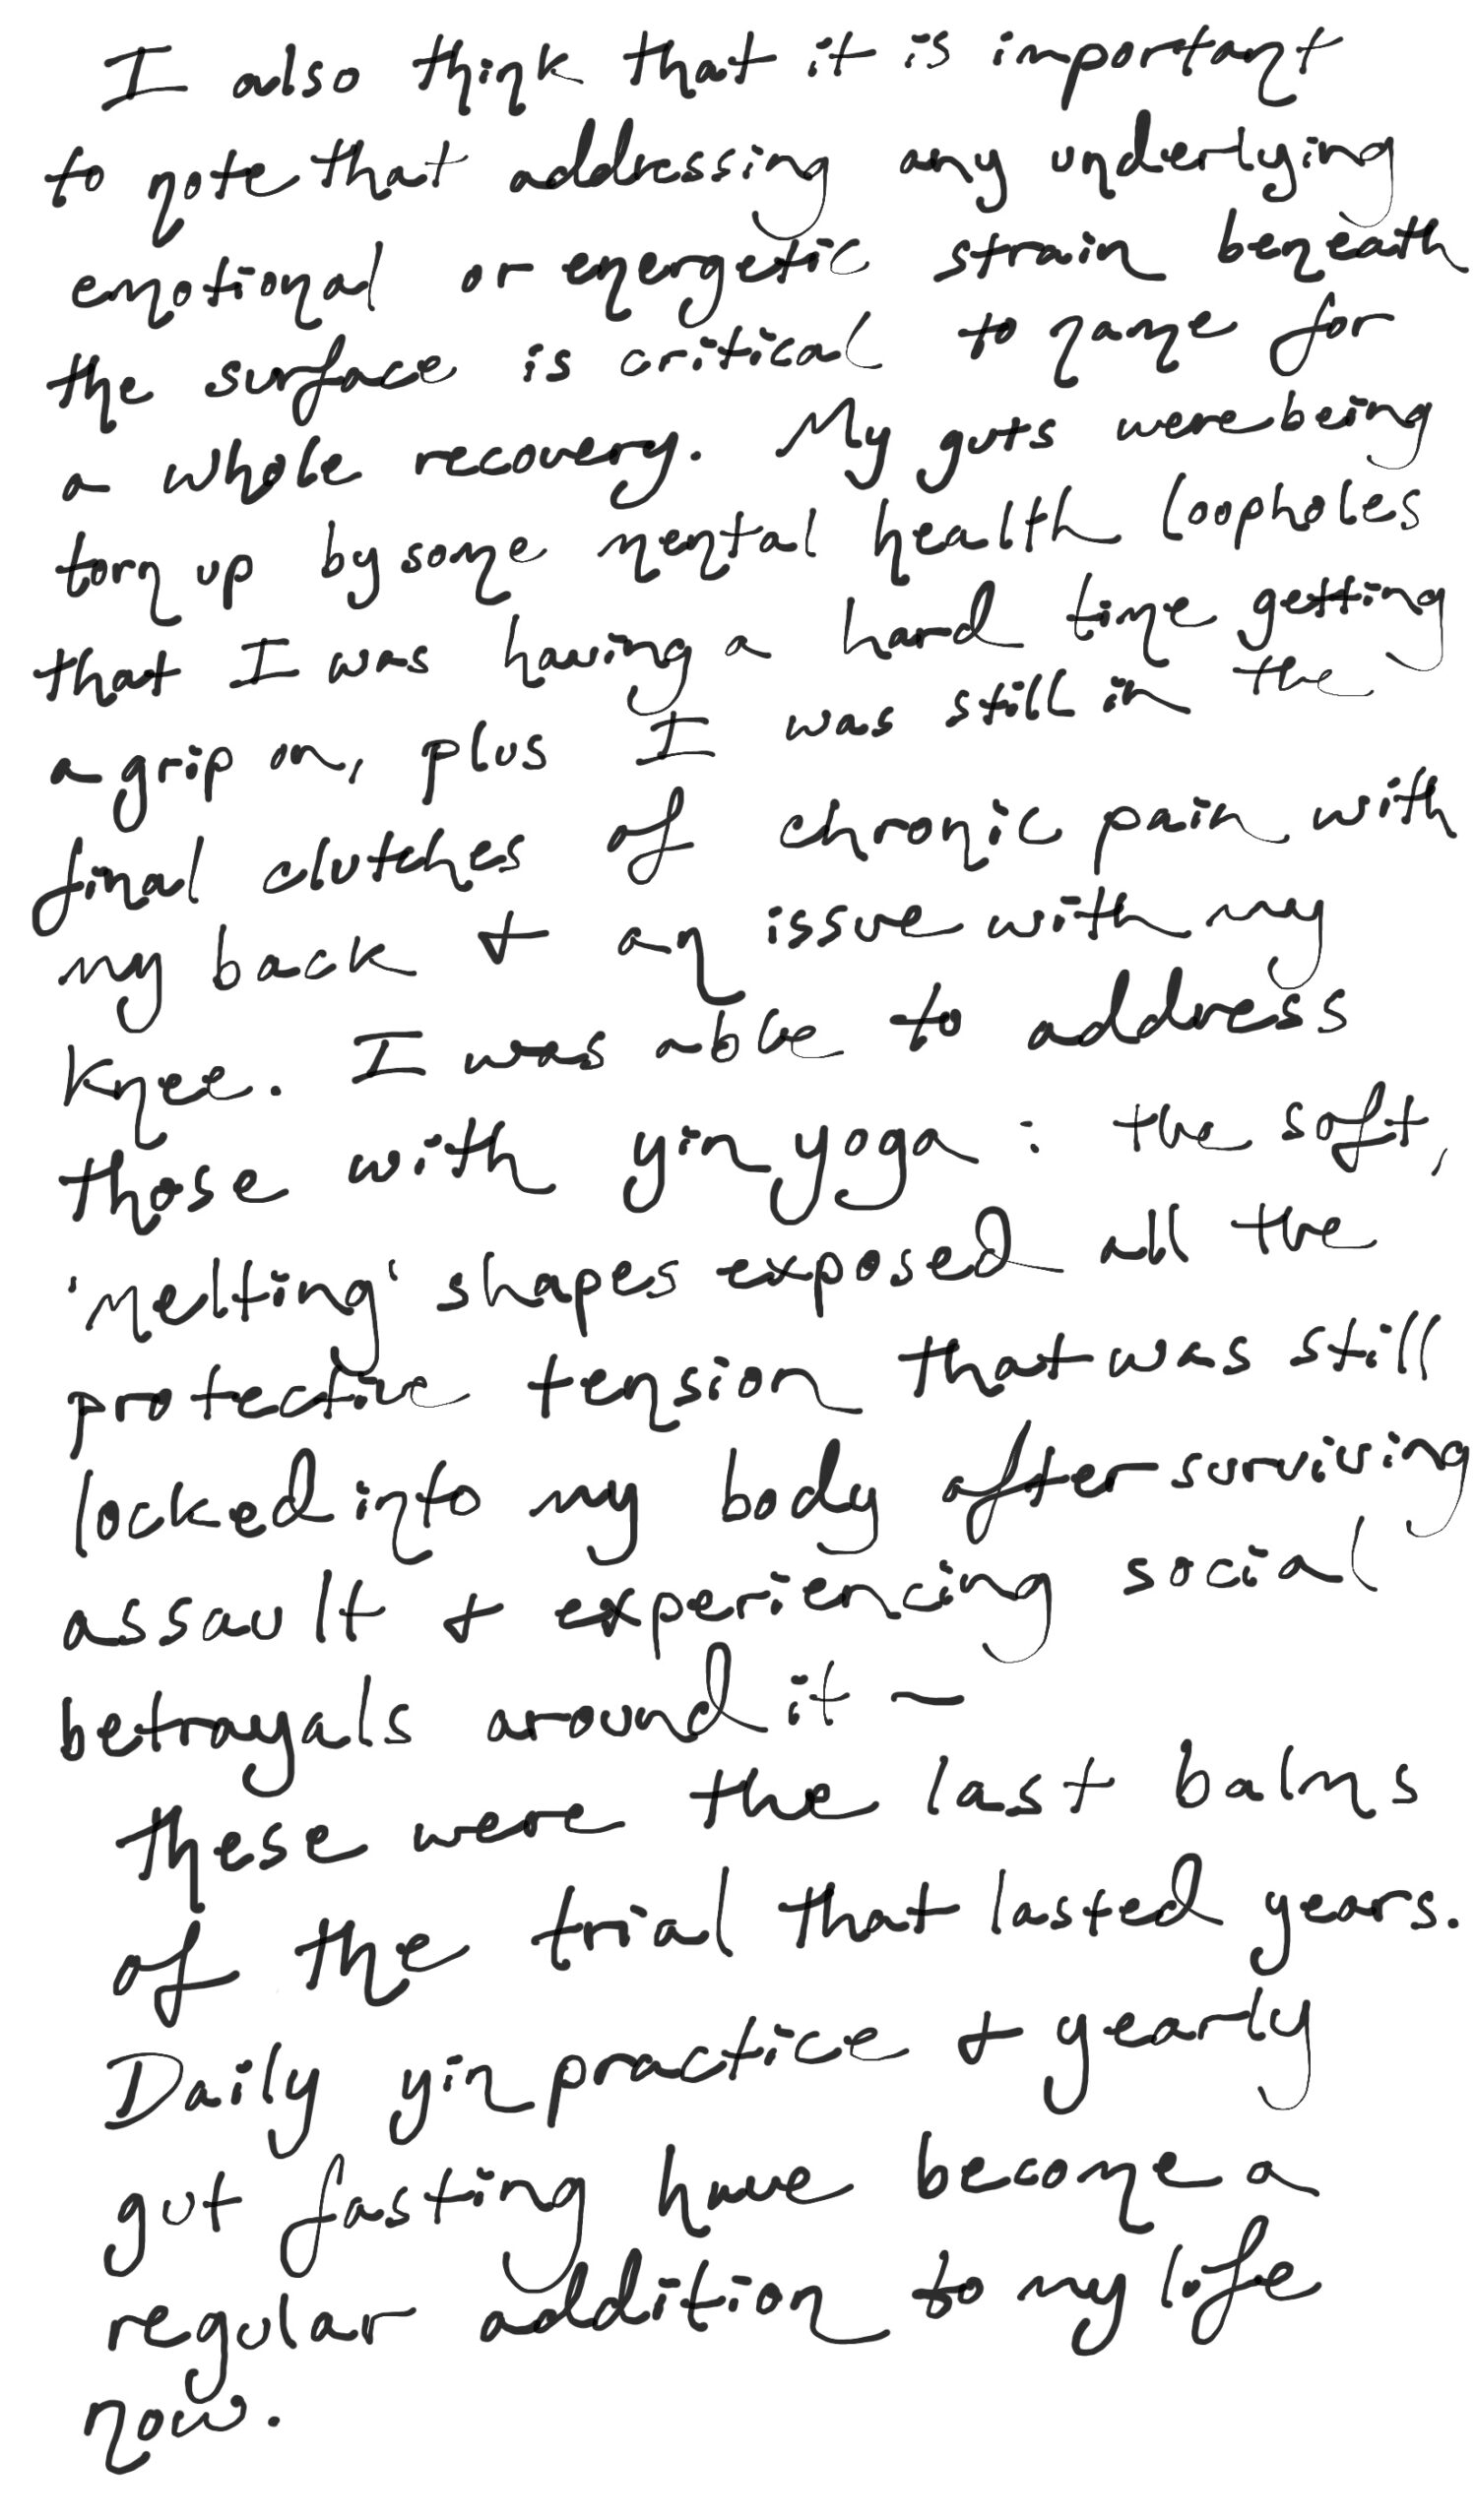 I also think that it is important
to note that addressing any underlying
emotional or energetic strain beneath
the surface is critical to name for
a whole recovery. My guts were being
torn up by some mental health loopholes
that I was having a hard time getting
a grip on, plus I was still in the
final clutches of chronic pain with
my back & an issue with my
knee. I was able to address
those with yin yoga: the soft,
'melting' shapes exposed all the
protective tension that was still
locked into my body after surviving
assault & experiencing social
betrayals around it –
these were the last balms
of the trial that lasted years.
Daily yin practice & yearly
gut fasting have become a
regular addition to my life
now.